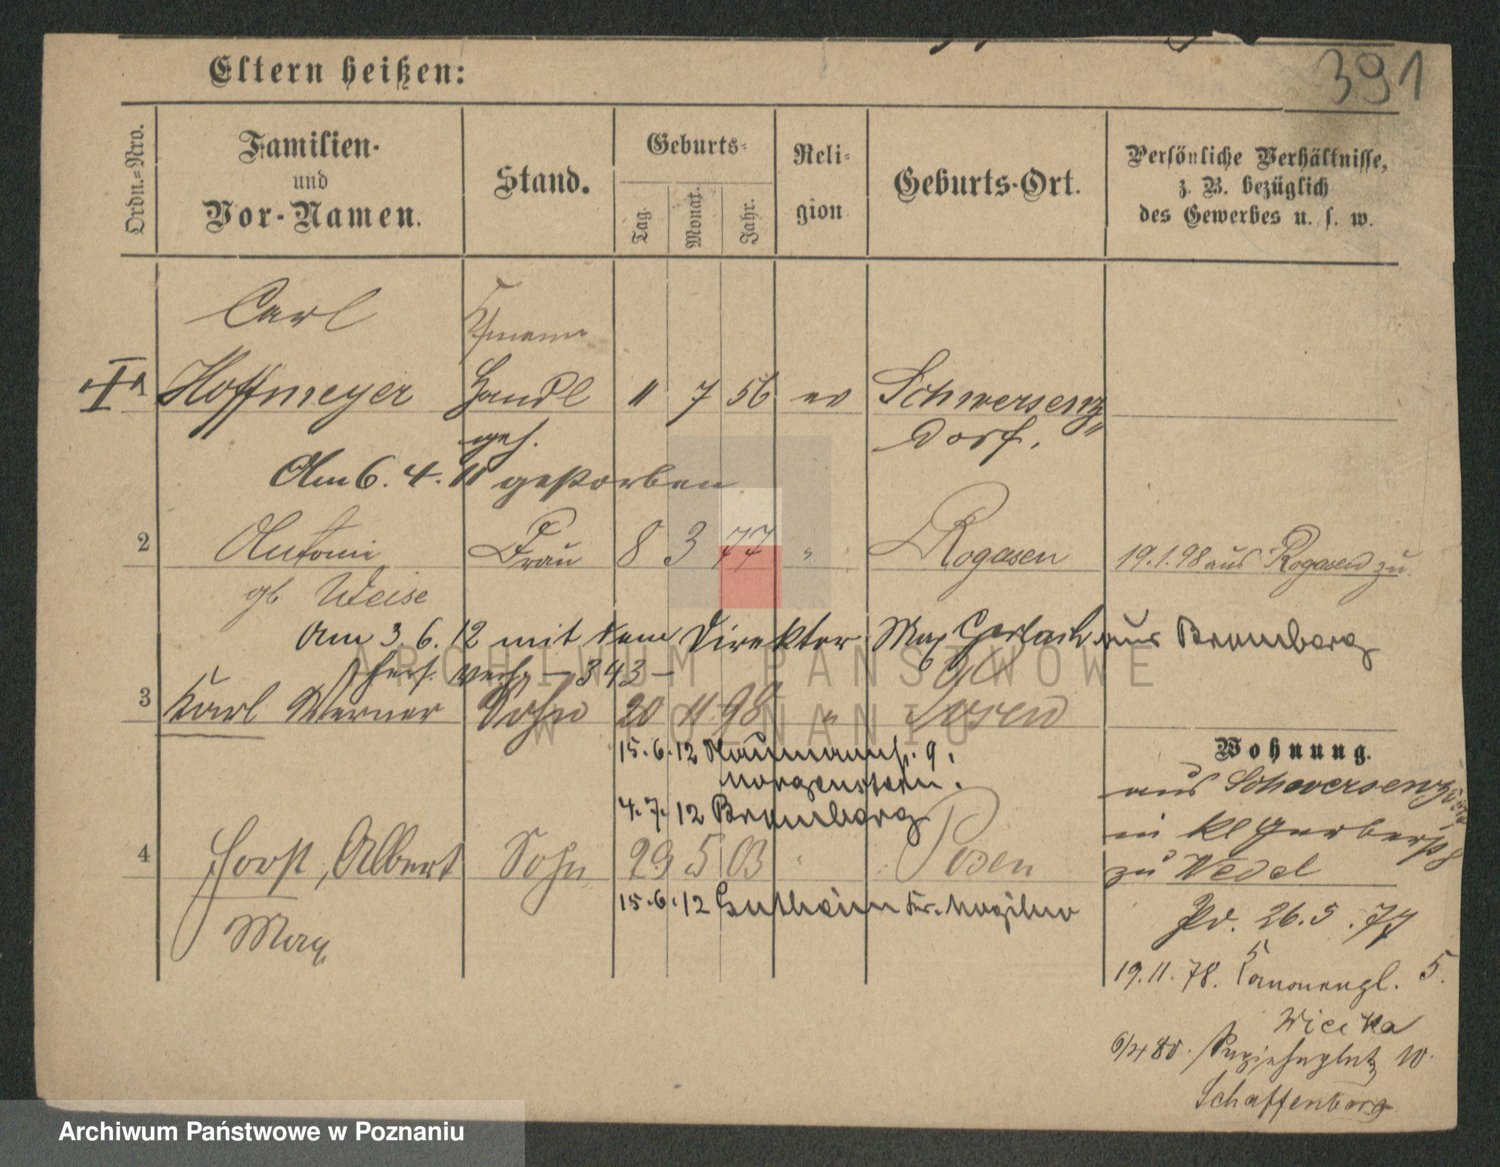 391
Eltern heißen:
Ordn.-Nro.
Familien- und Vor-Namen.
Stand.
Geburts-
Tag.
Monat.
Jahr.
Reli-
gion
Geburts-Ort.
Persönliche Verhältnisse,
z. B. bezüglich
des Gewerbes u. s. w.
Carl
Hoffmeyer Handl 11 7 56 ev Schwersenz
geh. Dorf.
Am 6. 4. 11 gestorben
2 Antonie Frau 8 3 77 " Rogasen 19.1.98 aus Rogasen zu.
gb Weise
Am 3. 6. 12 mit dem Direktor Max Gerlach aus Bromberg
verh. - 343 -
3 Karl Werner Sohn 20 11 98 " Posen
15.6.12 Naumannstr. 9.
Morgenstern.
4.7.12 Bromberg
Wohnung.
aus Schwersenz
in Kl Gerberstr 8
zu Wedel
4 Horst, Albert Sohn 29 5 03 " Posen
15.6.12 Kr. Mogilno
Max
Pr. 26.5.77
19.11.78. Kanonengl. 5.
Wicika
6/4 80. 10.
Schaffenberg
ARCHIWUM PAŃSTWOWE
W POZNANIU
Archiwum Państwowe w Poznaniu